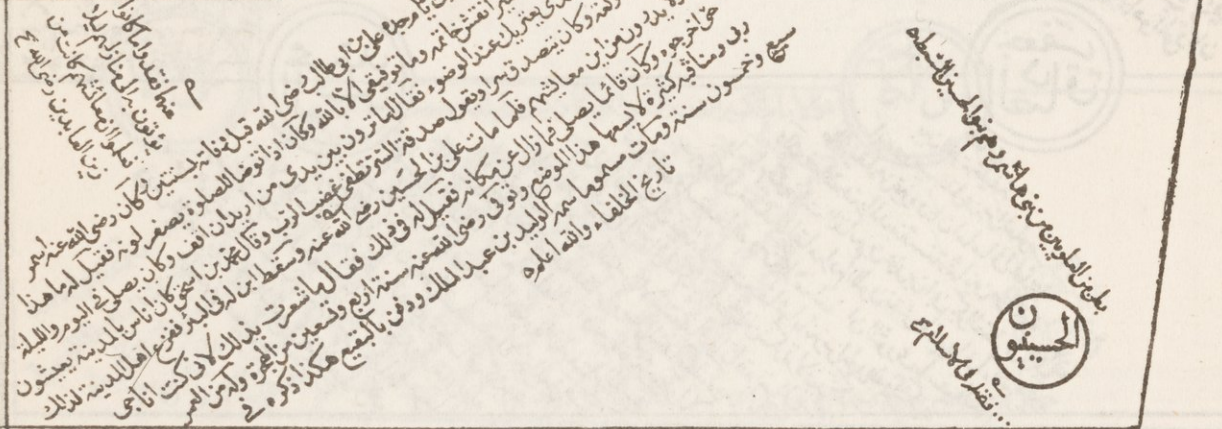 منها فقدوا ما كانوا
يؤتون به الى منازلهم ليلا
فعلموا ان معائشهم كانت من
زين العابدين رضي الله ع
علي بن ابي طالب رضي الله قبل وفاته بسنتين كان رضي الله عنه اسمر
نقش خاتمه وما توفيقي الا بالله وكان اذا توضا للصلوة يصفر لونه فقيل له ما هذا
يعتريك عند الوضوء فقال اما ترون بين يدي من اريد ان اقف وكان يصلي في اليوم والليلة
وكان يتصدق سرا ويقول صدقة السر تطفئ غضب الرب وقال محمد بن اسحق كان ناس بالمدينة يعيشون
لا يدرون من اين معائشهم فلما مات علي بن الحسين رضي الله عنه وسقط ابن له في البئر ففزع اهل المدينة لذلك
حتى اخرجوه وكان قائما يصلي فما زال عن مكانه فقيل له في ذلك فقال ما شعرت بذلك لاني كنت اناجي
ربي ومناقبه كثيرة لا يسعها هذا الموضع وتوفي رضي الله عنه سنة اربع وتسعين من الهجرة وله من العمر
سبع وخمسون سنة ومات مسموما سمه الوليد بن عبد الملك ودفن بالبقيع هكذا ذكره في
تاريخ الخلفاء والله اعلم
بطن من العلويين من بني هاشم وهم بنو الحسين السبط
الحسينيون